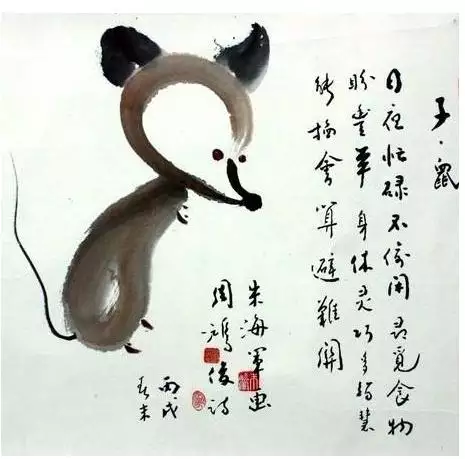 子·鼠
日夜忙碌不偷闲寻觅食物
盼豐年身体灵巧多智慧
能掐會算避難關
朱海军画
周鸿俊诗
丙戌